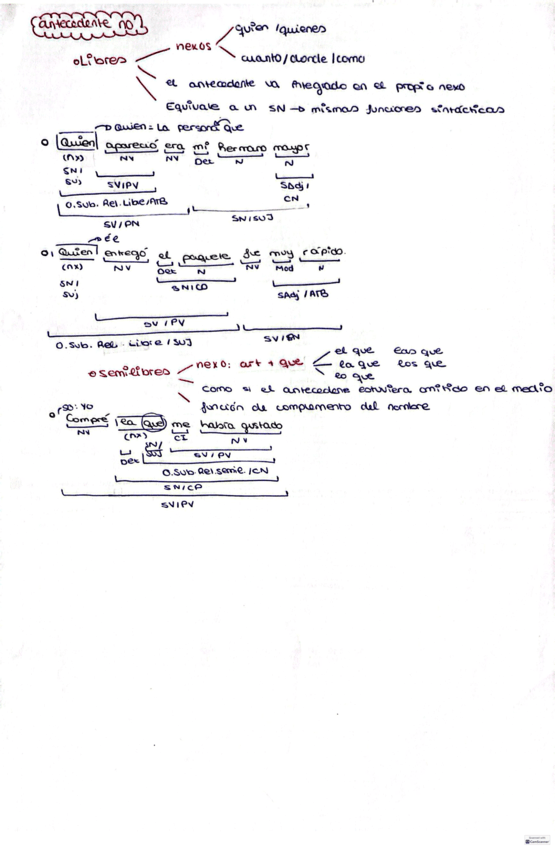 antecedente no
quien / quienes
nexos
o Libres
cuanto/donde/como
el antecedente va integrado en el propio nexo
Equivale a un SN → mismas funciones sintácticas
Quien = La persona que
Quien apareció era mi hermano mayor
(nx) NV NV Det N N
SN/ SAdj/
SUJ SV/PV CN
O.Sub. Rel. Libe/ATB
SN/SUJ
SV/PN
él
Quien entregó el paquete fue muy rápido.
(nx) NV Det N NV Mod N
SN/ SN/CD SAdj/ATB
SUJ
SV/PV
SV/PN
O.Sub. Rel. Libre/SUJ
el que las que
nexo: art + que la que los que
o semilibres lo que
como si el antecedente estuviera omitido en el medio
función de complemento del nombre
SO: Yo
Compré la que me había gustado
NV (nx) CI NV
SN/
Det SUJ SV/PV
O.Sub.Rel.semil./CN
SN/CD
SV/PV
CamScanner